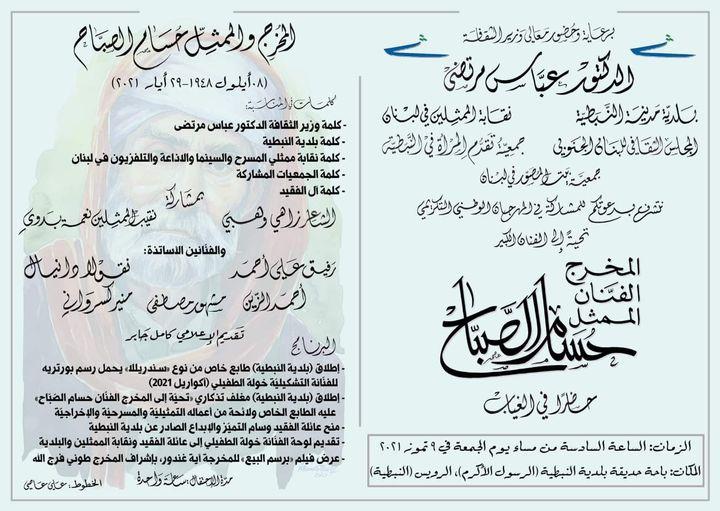 برعاية وحضور معالي وزير الثقافة
الدكتور عبّاس مرتضى
بلدية مدينة النبطية نقابة الممثلين في لبنان
المجلس الثقافي للبنان الجنوبي جمعية تقدم المرأة في النبطية
جمعية بيت المصور في لبنان
تتشرف بدعوتكم للمشاركة في المهرجان الوطني التكريمي
تحية إلى الفنان الكبير
المخرج
الفنان
الممثل
حسام الصبّاح
حاضرًا في الغياب
الزمان: الساعة السادسة من مساء يوم الجمعة في ٩ تموز ٢٠٢١
المكان: باحة حديقة بلدية النبطية (الرسول الأكرم)، الرويس (النبطية)
المخرج والممثل حسام الصبّاح
(٠٨ أيلول ١٩٤٨-٢٩ أيار ٢٠٢١)
كلمات في المناسبة:
- كلمة وزير الثقافة الدكتور عباس مرتضى
- كلمة بلدية النبطية
- كلمة نقابة ممثلي المسرح والسينما والاذاعة والتلفزيون في لبنان
- كلمة الجمعيات المشاركة
- كلمة آل الفقيد
بمشاركة
الشاعر زاهي وهبي نقيب الممثلين نعمة بدوي
والفنّانين الأساتذة:
رفيق علي أحمد نقولا دانيال
أحمد الزين مشهور مصطفى منير كسرواني
تقديم الإعلامي كامل جابر
البرنامج
- إطلاق (بلدية النبطية) طابع خاص من نوع «سندريللا» يحمل رسم بورتريه
للفنّانة التشكيليّة خولة الطفيلي (أكواريل 2021)
- إطلاق (بلدية النبطية) مغلف تذكاري «تحيّة إلى المخرج الفنّان حسام الصبّاح»
عليه الطابع الخاص ولائحة من أعماله التمثيليّة والمسرحيّة والإخراجيّة
- منح عائلة الفقيد وسام التميّز والإبداع الصادر عن بلدية النبطية
- تقديم لوحة الفنّانة خولة الطفيلي إلى عائلة الفقيد ونقابة الممثلين والبلدية
- عرض فيلم «برسم البيع» للمخرجة آية غندور، بإشراف المخرج طوني فرج الله
مدّة الإحتفال: ساعة واحدة الخطوط: علي عاصي